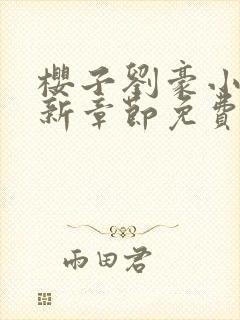 櫻子劉豪小
新章節免費
雨田君